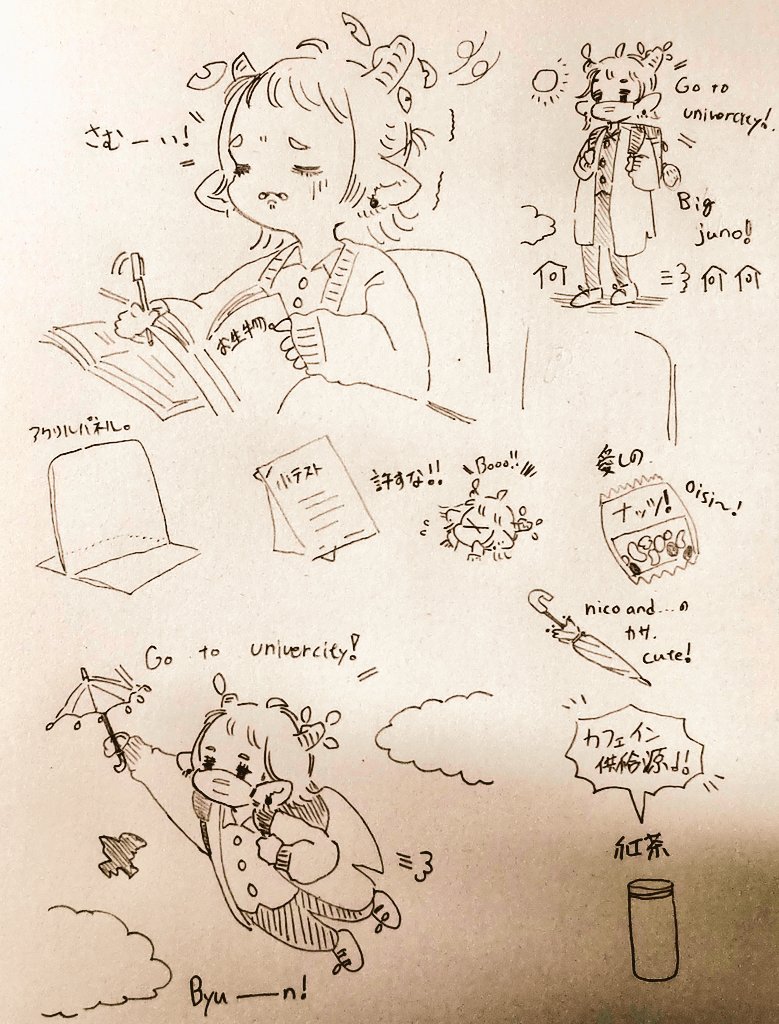 さむーい!
Go to
univercity!
Big
juno!
お生物。
アクリルパネル。
小テスト
許すな!!
Booo!!
愛しの
ナッツ!
Oisi〜!
nico and...の
カサ.
cute!
Go to univercity!
カフェイン
供給源♩!
紅茶
Byu——n!